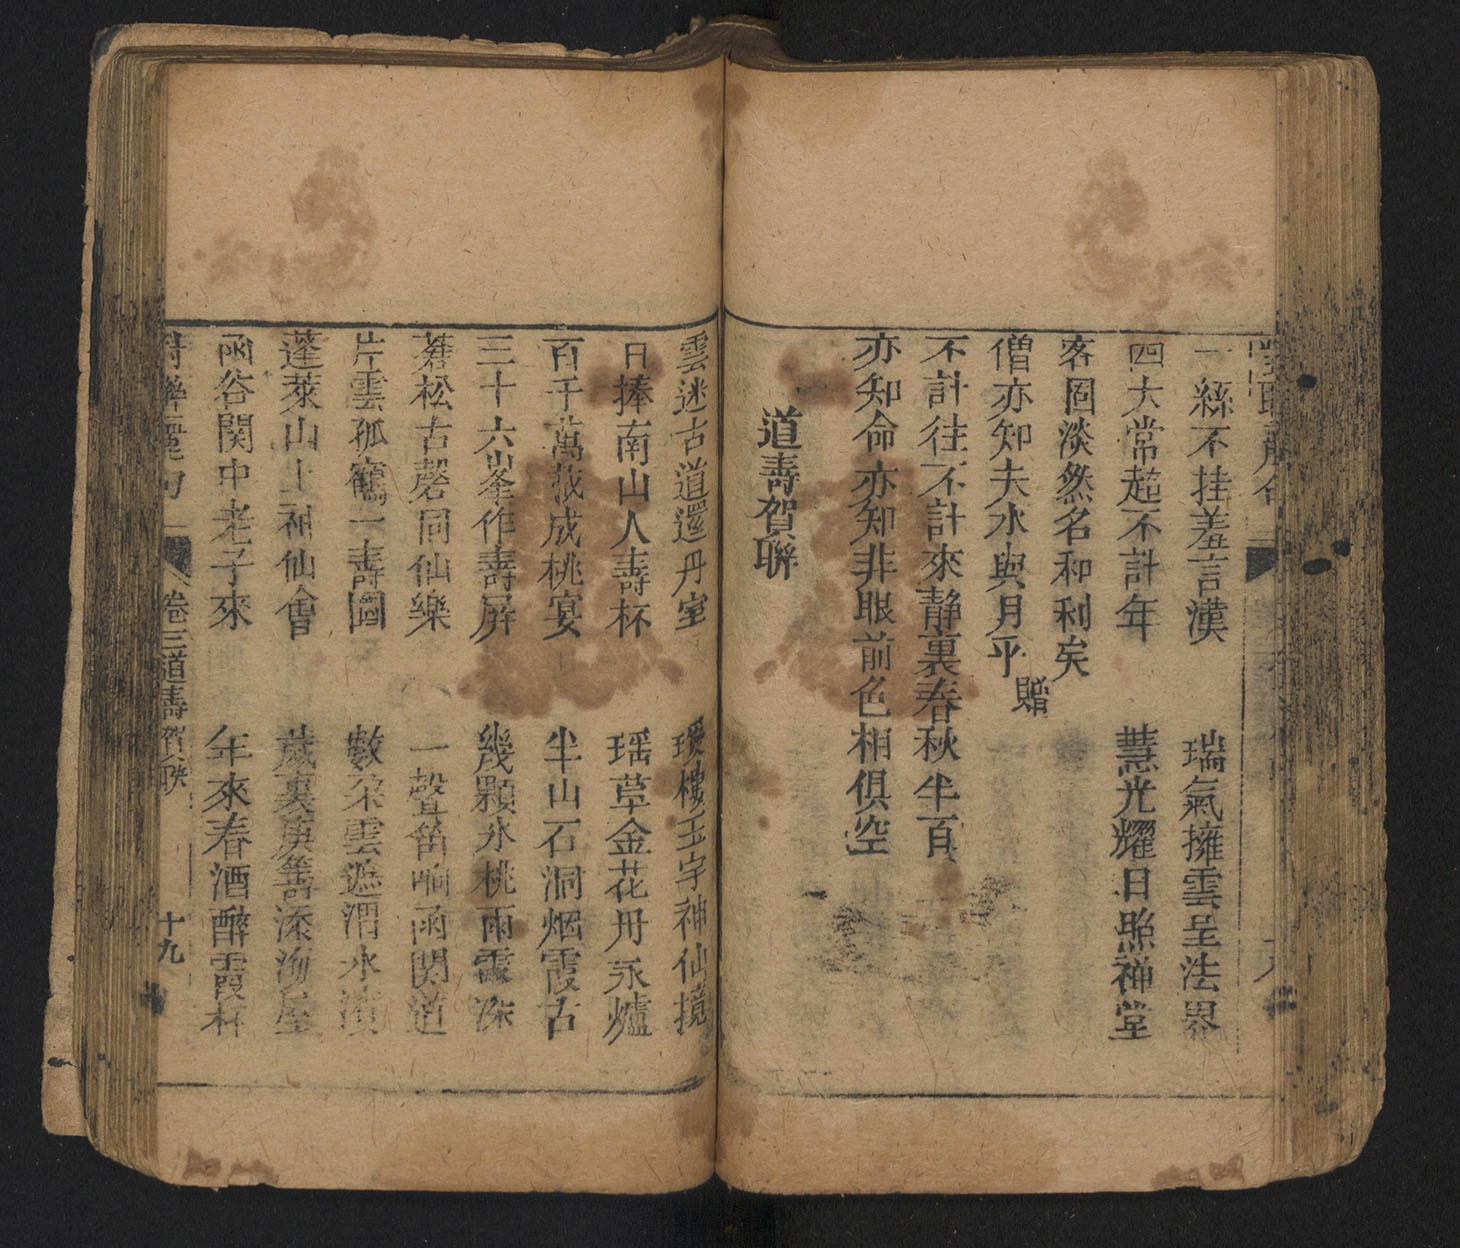 一絲不挂羞言漢　瑞氣擁雲呈法界
四大常超不計年　慧光耀日照禅堂
客固淡然名和利矣
僧亦知夫水與月乎　贈
不計往不計來靜裏春秋半百
亦知命亦知非眼前色相俱空
道壽賀聯
雲迷古道還丹室　瓊樓玉宇神仙境
日捧南山人壽杯　瑶草金花丹永爐
百千萬哉成桃宴　半山石洞烟霞古
三十六峯作壽屏　幾顆氷桃雨露深
蒼松古磬同仙樂　一聲笛响函関道
片雲孤鶴一壽圖　數朶雲遮渭水濱
蓬萊山上神仙會　歲裏庚籌添海屋
函谷関中老子來　年來春酒醉霞杯
卷三道壽賀聯　十九